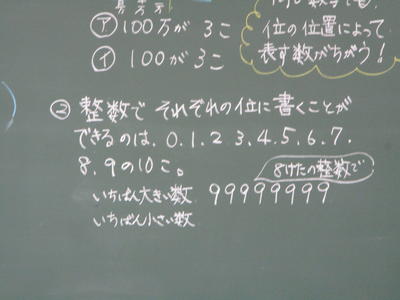 位の位置によって
表す数がちがう!
㋐100万が 3こ
㋑100が 3こ
② 整数で それぞれの位に書くことが
できるのは、0.1.2.3.4.5.6.7.
8.9の10こ。
8けたの整数で
いちばん大きい数 99999999
いちばん小さい数